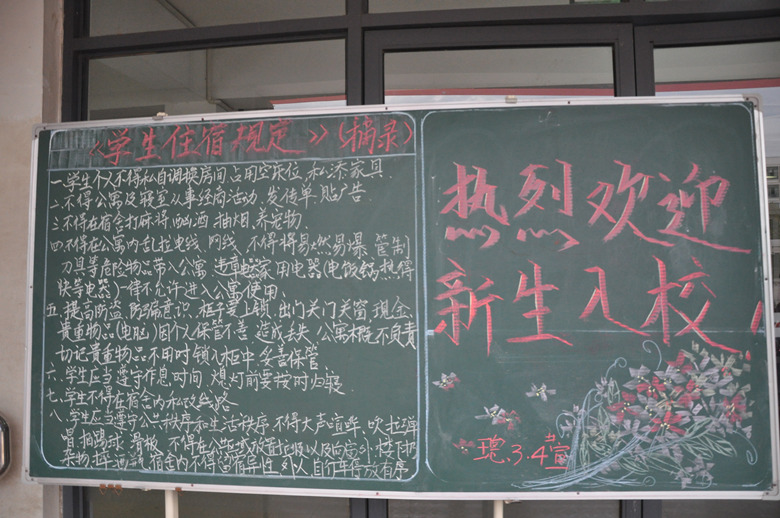 《学生住宿规定》(摘录)
一.学生个人不得私自调换房间、占用空床位、私添家具.
二.不得公寓及寝室从事经商活动、发传单、贴广告.
三.不得在宿舍打麻将、酗酒、抽烟、养宠物.
四.不得在公寓内乱拉电线、网线、不得将易燃易爆、管制
刀具等危险物品带入公寓、违章 家用电器(电饭锅、热得
快等电器)一律不允许进入公寓使用、
五.提高防盗、防骗意识、柜子要上锁、出门关门关窗、现金、
贵重物品(电脑)因个人保管不善、造成丢失、公寓概不负责
切记贵重物品不用时锁入柜中妥善保管
六.学生应当遵守作息时间、熄灯前要按时归寝
七.学生不得在宿舍内私改线路
八.学生应当遵守公共秩序和生活秩序、不得大声喧哗、吹拉弹
唱、拍踢球、滑板、不得在公共区域放置垃圾以及向窗外、楼下扔
杂物、 宿舍内不得留宿异性、外人、自行车停放有序
热烈欢迎
新生入校!
瑰.3.4